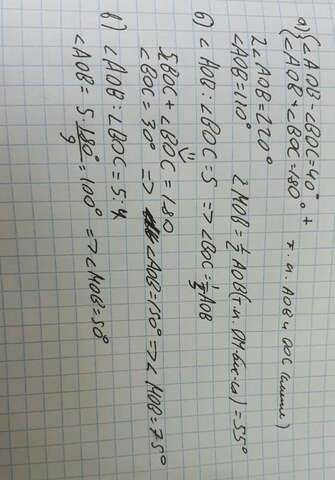 а) { ∠AOB - ∠BOC = 40° +
∠AOB + ∠BOC = 180° т.к. AOB и (смежн)
2∠AOB = 220°
∠AOB = 110° ∠MOB = 1/2 AOB (т.к. OM бис-са) = 55°
б) ∠AOB : ∠BOC = 5 => ∠BOC = 1/5 AOB
5∠BOC + ∠BOC = 180
∠BOC = 30° => ∠AOB = 150° => ∠MOB = 75°
в) ∠AOB : ∠BOC = 5:4
∠AOB = 5 180°/9 = 100° => ∠MOB = 50°